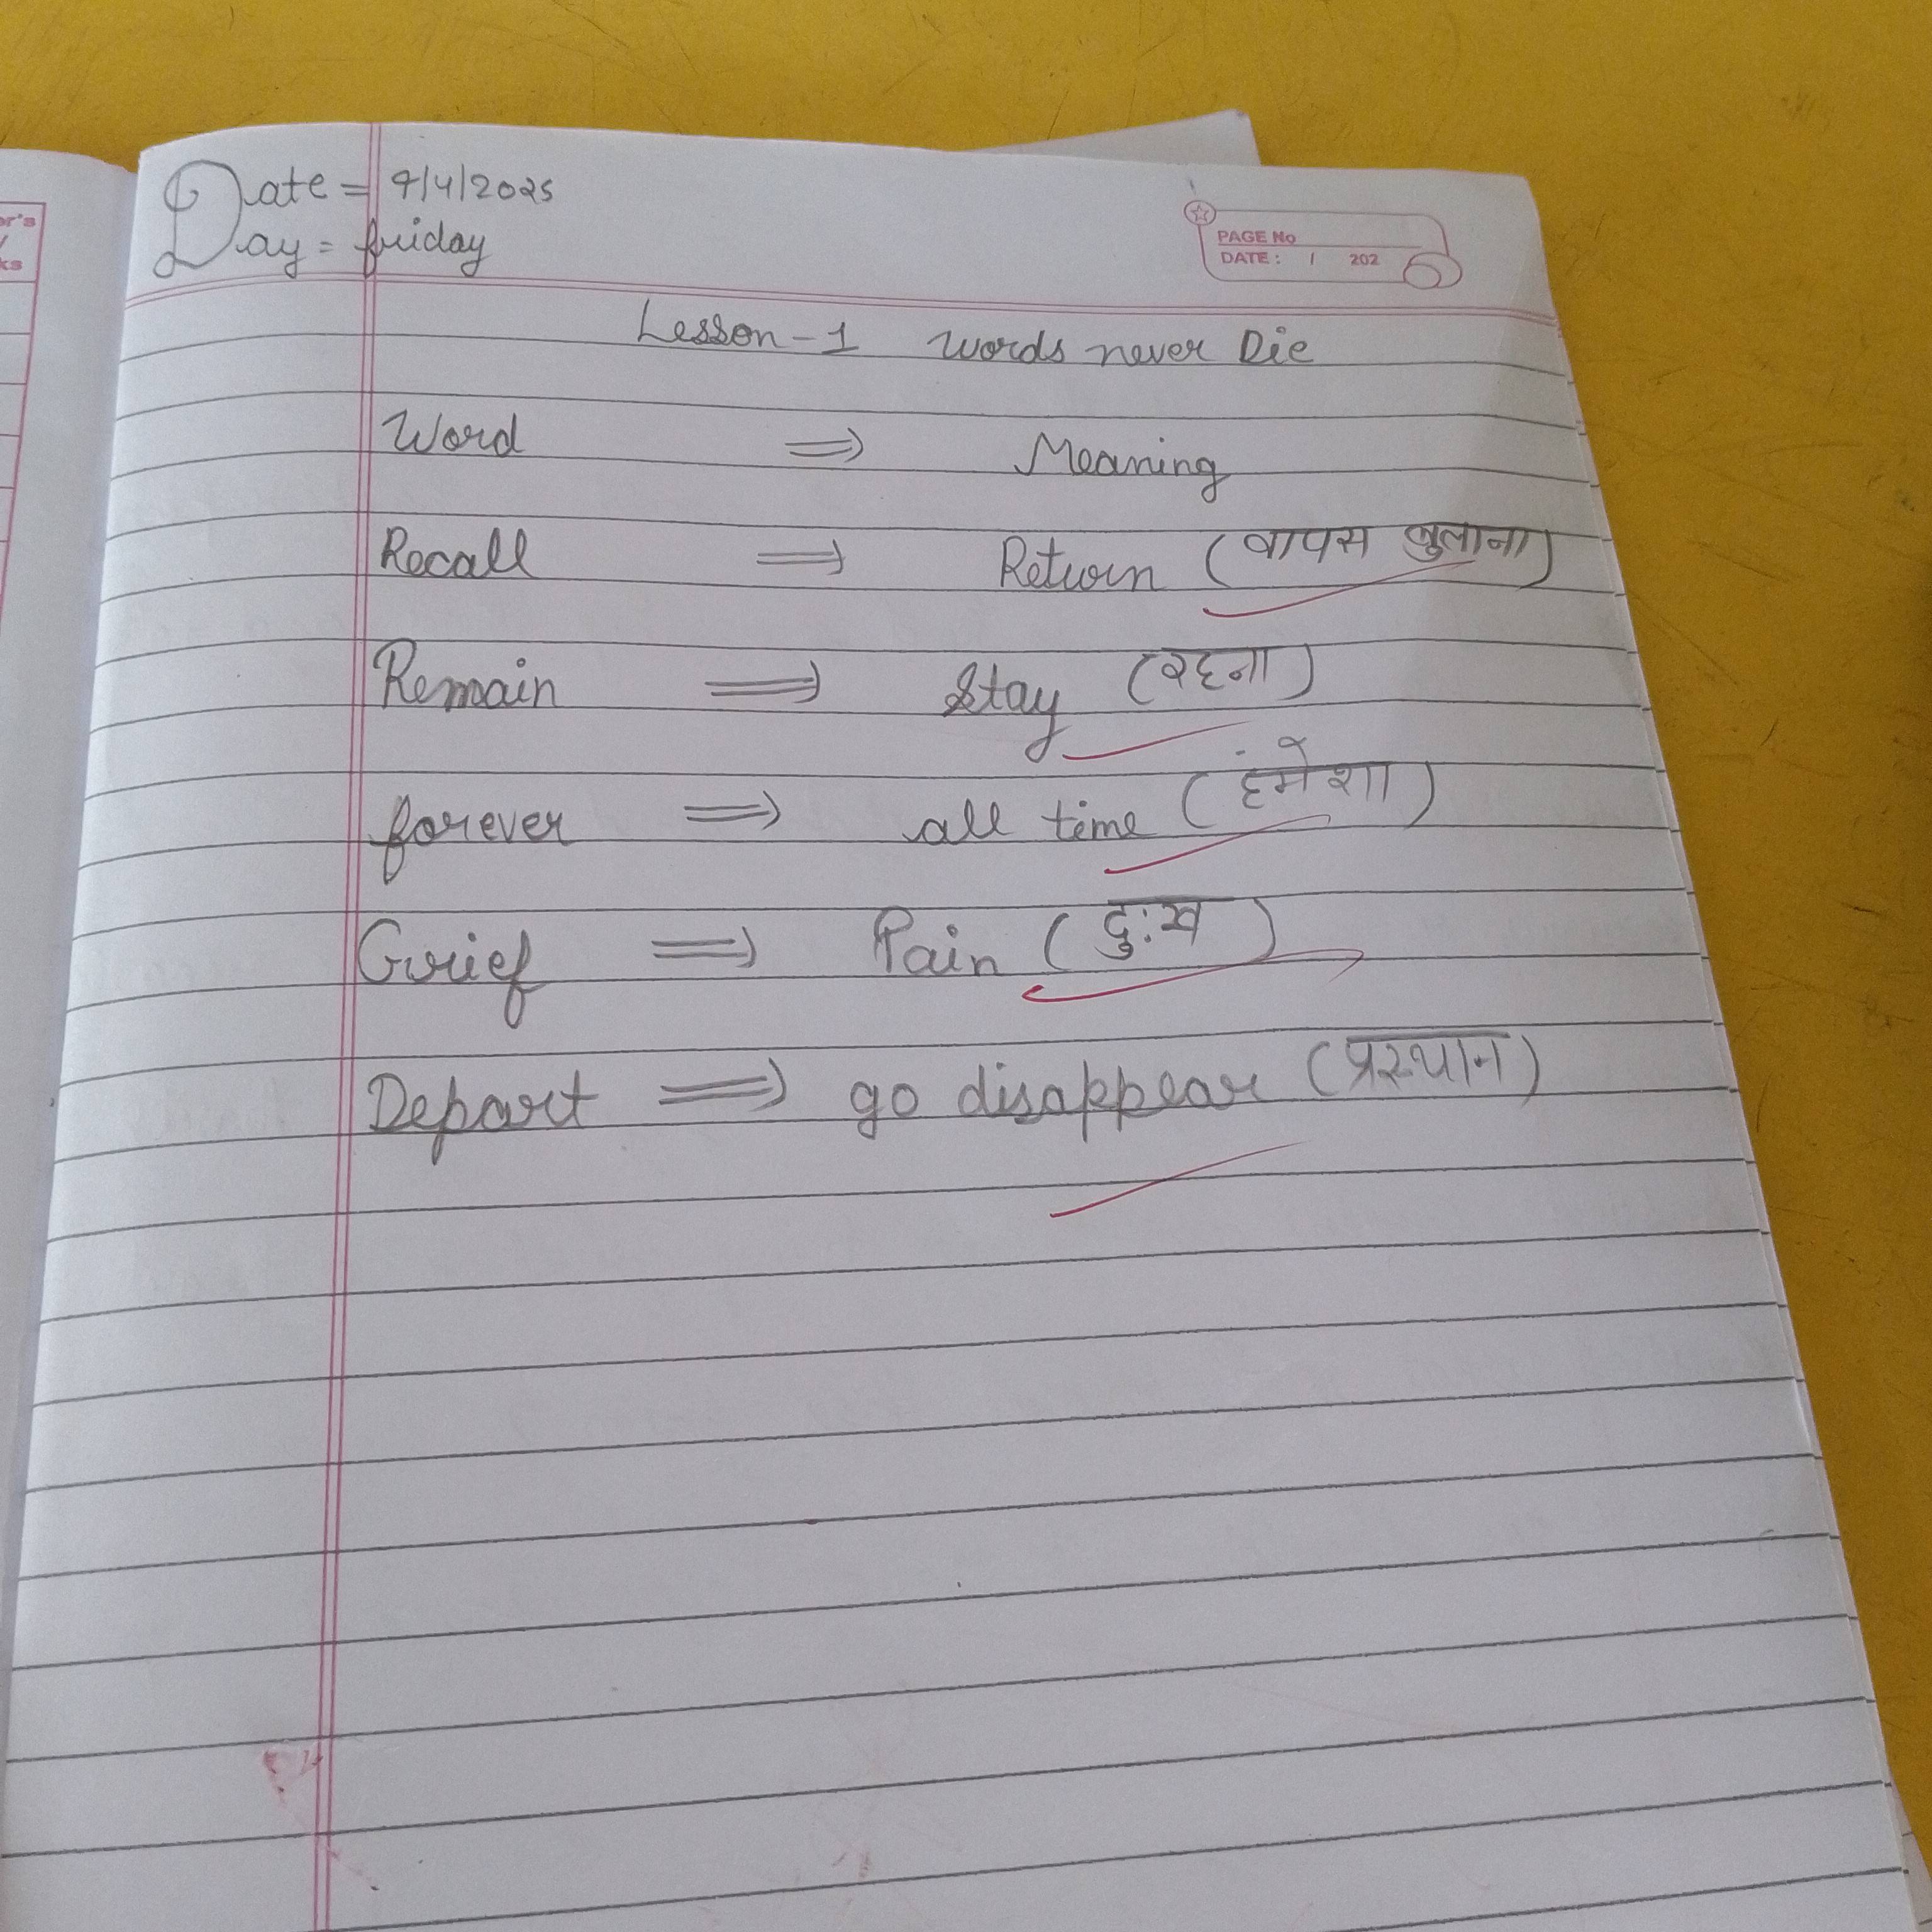 Date = 9/4/2025
Day = friday
PAGE No
DATE: / 202
Lesson-1 Words never Die
Word ⇒ Meaning
Recall ⇒ Return (वापस बुलाना)
Remain ⇒ Stay (रहना)
forever ⇒ all time (हंमेशा)
Grief ⇒ Pain (दुःख)
Depart ⇒ go disappear (प्रस्थान)